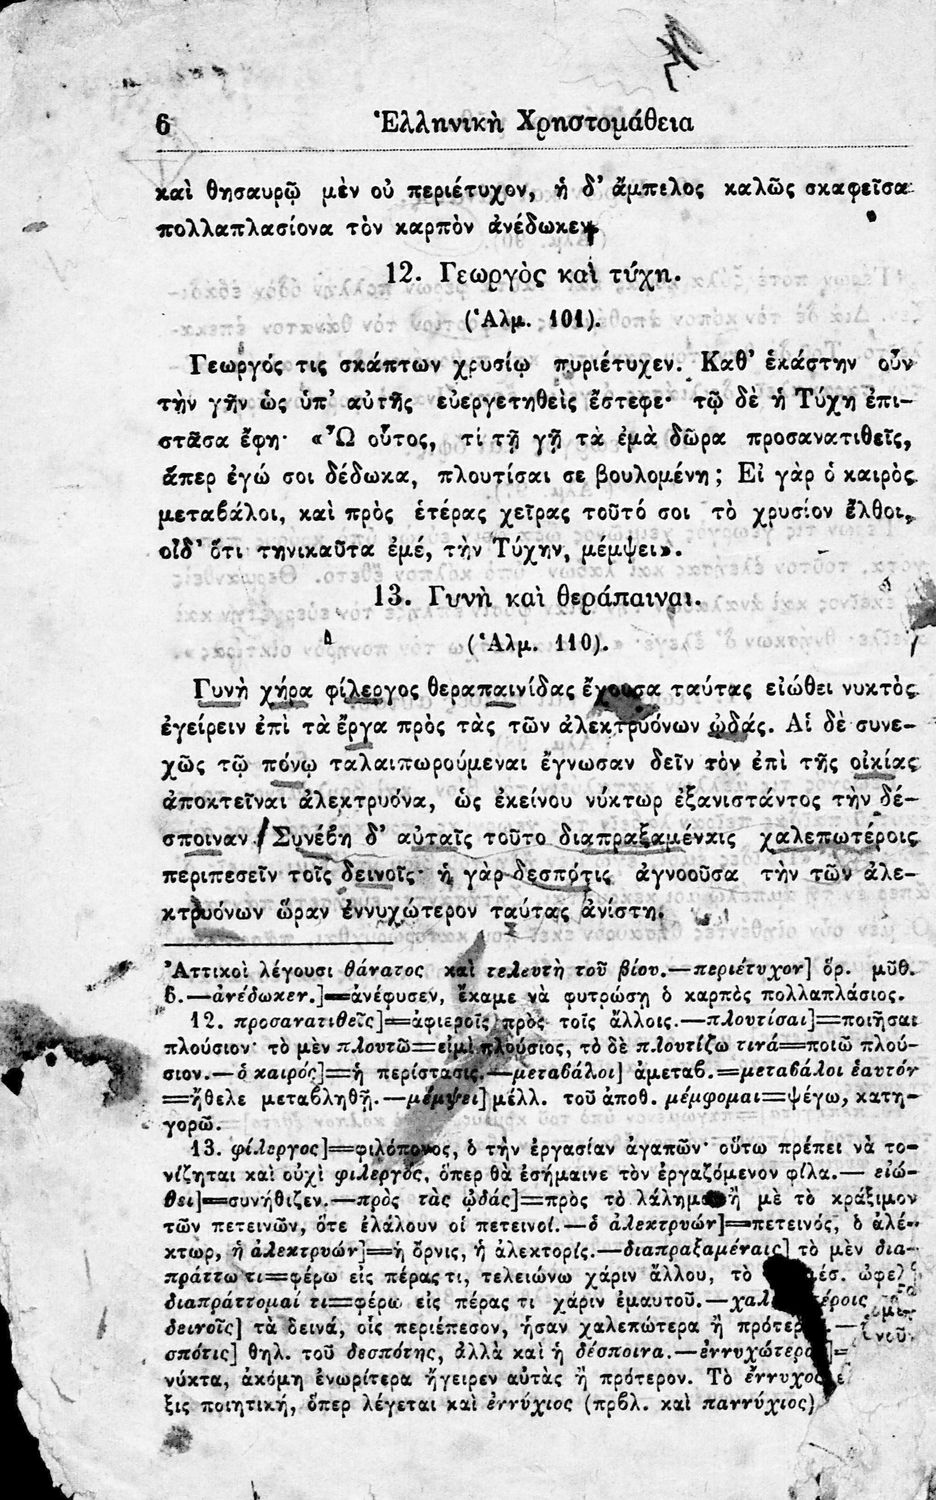 6 Ἑλληνικὴ Χρηστομάθεια
καὶ θησαυρῷ μὲν οὐ περιέτυχον, ἡ δ' ἄμπελος καλῶς σκαφεῖσα
πολλαπλασίονα τὸν καρπὸν ἀνέδωκεν.
12. Γεωργὸς καὶ τύχη.
(Ἁλμ. 101).
Γεωργός τις σκάπτων χρυσίῳ πυριέτυχεν. Καθ' ἑκάστην οὖν
τὴν γῆν ὡς ὑπ' αὐτῆς εὐεργετηθεὶς ἔστεφε· τῷ δὲ ἡ Τύχη ἐπι-
στᾶσα ἔφη· «Ὦ οὗτος, τί τῇ γῇ τὰ ἐμὰ δῶρα προσανατιθεῖς,
ἅπερ ἐγώ σοι δέδωκα, πλουτίσαι σε βουλομένη; Εἰ γὰρ ὁ καιρὸς
μεταβάλοι, καὶ πρὸς ἑτέρας χεῖρας τοῦτό σοι τὸ χρυσίον ἔλθοι,
οἶδ' ὅτι τηνικαῦτα ἐμέ, τὴν Τύχην, μέμψει».
13. Γυνὴ καὶ θεράπαιναι.
(Ἁλμ. 110).
Γυνὴ χήρα φίλεργος θεραπαινίδας ἔχουσα ταύτας εἰώθει νυκτὸς
ἐγείρειν ἐπὶ τὰ ἔργα πρὸς τὰς τῶν ἀλεκτρυόνων ᾠδάς. Αἱ δὲ συνε-
χῶς τῷ πόνῳ ταλαιπωρούμεναι ἔγνωσαν δεῖν τὸν ἐπὶ τῆς οἰκίας
ἀποκτεῖναι ἀλεκτρυόνα, ὡς ἐκείνου νύκτωρ ἐξανιστάντος τὴν δέ-
σποιναν. Συνέβη δ' αὐταῖς τοῦτο διαπραξαμέναις χαλεπωτέροις
περιπεσεῖν τοῖς δεινοῖς· ἡ γὰρ δεσπότις ἀγνοοῦσα τὴν τῶν ἀλε-
κτρυόνων ὥραν ἐννυχώτερον ταύτας ἀνίστη.
Ἀττικοὶ λέγουσι θάνατος καὶ τελευτὴ τοῦ βίου.—περιέτυχον] ὅρ. μῦθ.
6.—ἀνέδωκεν.]=ἀνέφυσεν, ἔκαμε νὰ φυτρώσῃ ὁ καρπὸς πολλαπλάσιος.
12. προσανατιθεῖς]=ἀφιεροῖς πρὸς τοῖς ἄλλοις.—πλουτίσαι]=ποιῆσαι
πλούσιον· τὸ μὲν πλουτῶ=εἰμὶ πλούσιος, τὸ δὲ πλουτίζω τινά=ποιῶ πλού-
σιον.—ὁ καιρός]=ἡ περίστασις.—μεταβάλοι] ἀμεταβ.=μεταβάλοι ἑαυτόν
=ἤθελε μεταβληθῇ.—μέμψει] μέλλ. τοῦ ἀποθ. μέμφομαι=ψέγω, κατη-
γορῶ.
13. φίλεργος]=φιλόπονος, ὁ τὴν ἐργασίαν ἀγαπῶν· οὕτω πρέπει νὰ το-
νίζηται καὶ οὐχὶ φιλεργός, ὅπερ θὰ ἐσήμαινε τὸν ἐργαζόμενον φίλα.—εἰώ-
θει]=συνήθιζεν.—πρὸς τὰς ᾠδάς]=πρὸς τὸ λάλημα ἢ μὲ τὸ κράξιμον
τῶν πετεινῶν, ὅτε ἐλάλουν οἱ πετεινοί.—ὁ ἀλεκτρυών]=πετεινός, ὁ ἀλέ-
κτωρ, ἡ ἀλεκτρυών]=ἡ ὄρνις, ἡ ἀλεκτορίς.—διαπραξαμέναις] τὸ μὲν δια-
πράττω τι=φέρω εἰς πέρας τι, τελειώνω χάριν ἄλλου, τὸ
διαπράττομαί τι=φέρω εἰς πέρας τι χάριν ἐμαυτοῦ.—
δεινοῖς] τὰ δεινά, οἷς περιέπεσον, ἦσαν χαλεπώτερα ἢ
σπότις] θηλ. τοῦ δεσπότης, ἀλλὰ καὶ ἡ δέσποινα.—
νύκτα, ἀκόμη ἐνωρίτερα ἤγειρεν αὐτὰς ἢ πρότερον. Τὸ
ξις ποιητική, ὅπερ λέγεται καὶ ἐννύχιος (πρβλ. καὶ παννύχιος)